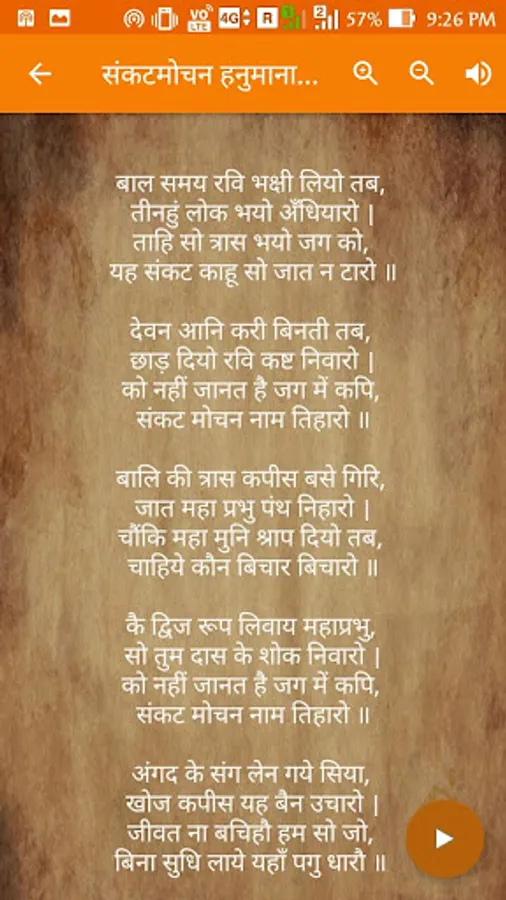 VO LTE 4G R 1 2 57% 9:26 PM
संकटमोचन हनुमाना...
बाल समय रवि भक्षी लियो तब,
तीनहुं लोक भयो अँधियारो |
ताहि सो त्रास भयो जग को,
यह संकट काहू सो जात न टारो ॥
देवन आनि करी बिनती तब,
छाड़ दियो रवि कष्ट निवारो |
को नहीं जानत है जग में कपि,
संकट मोचन नाम तिहारो ॥
बालि की त्रास कपीस बसे गिरि,
जात महा प्रभु पंथ निहारो |
चौंकि महा मुनि श्राप दियो तब,
चाहिये कौन बिचार बिचारो ॥
कै द्विज रूप लिवाय महाप्रभु,
सो तुम दास के शोक निवारो |
को नहीं जानत है जग में कपि,
संकट मोचन नाम तिहारो ॥
अंगद के संग लेन गये सिया,
खोज कपीस यह बैन उचारो |
जीवत ना बचिहौ हम सो जो,
बिना सुधि लाये यहाँ पगु धारौ ॥